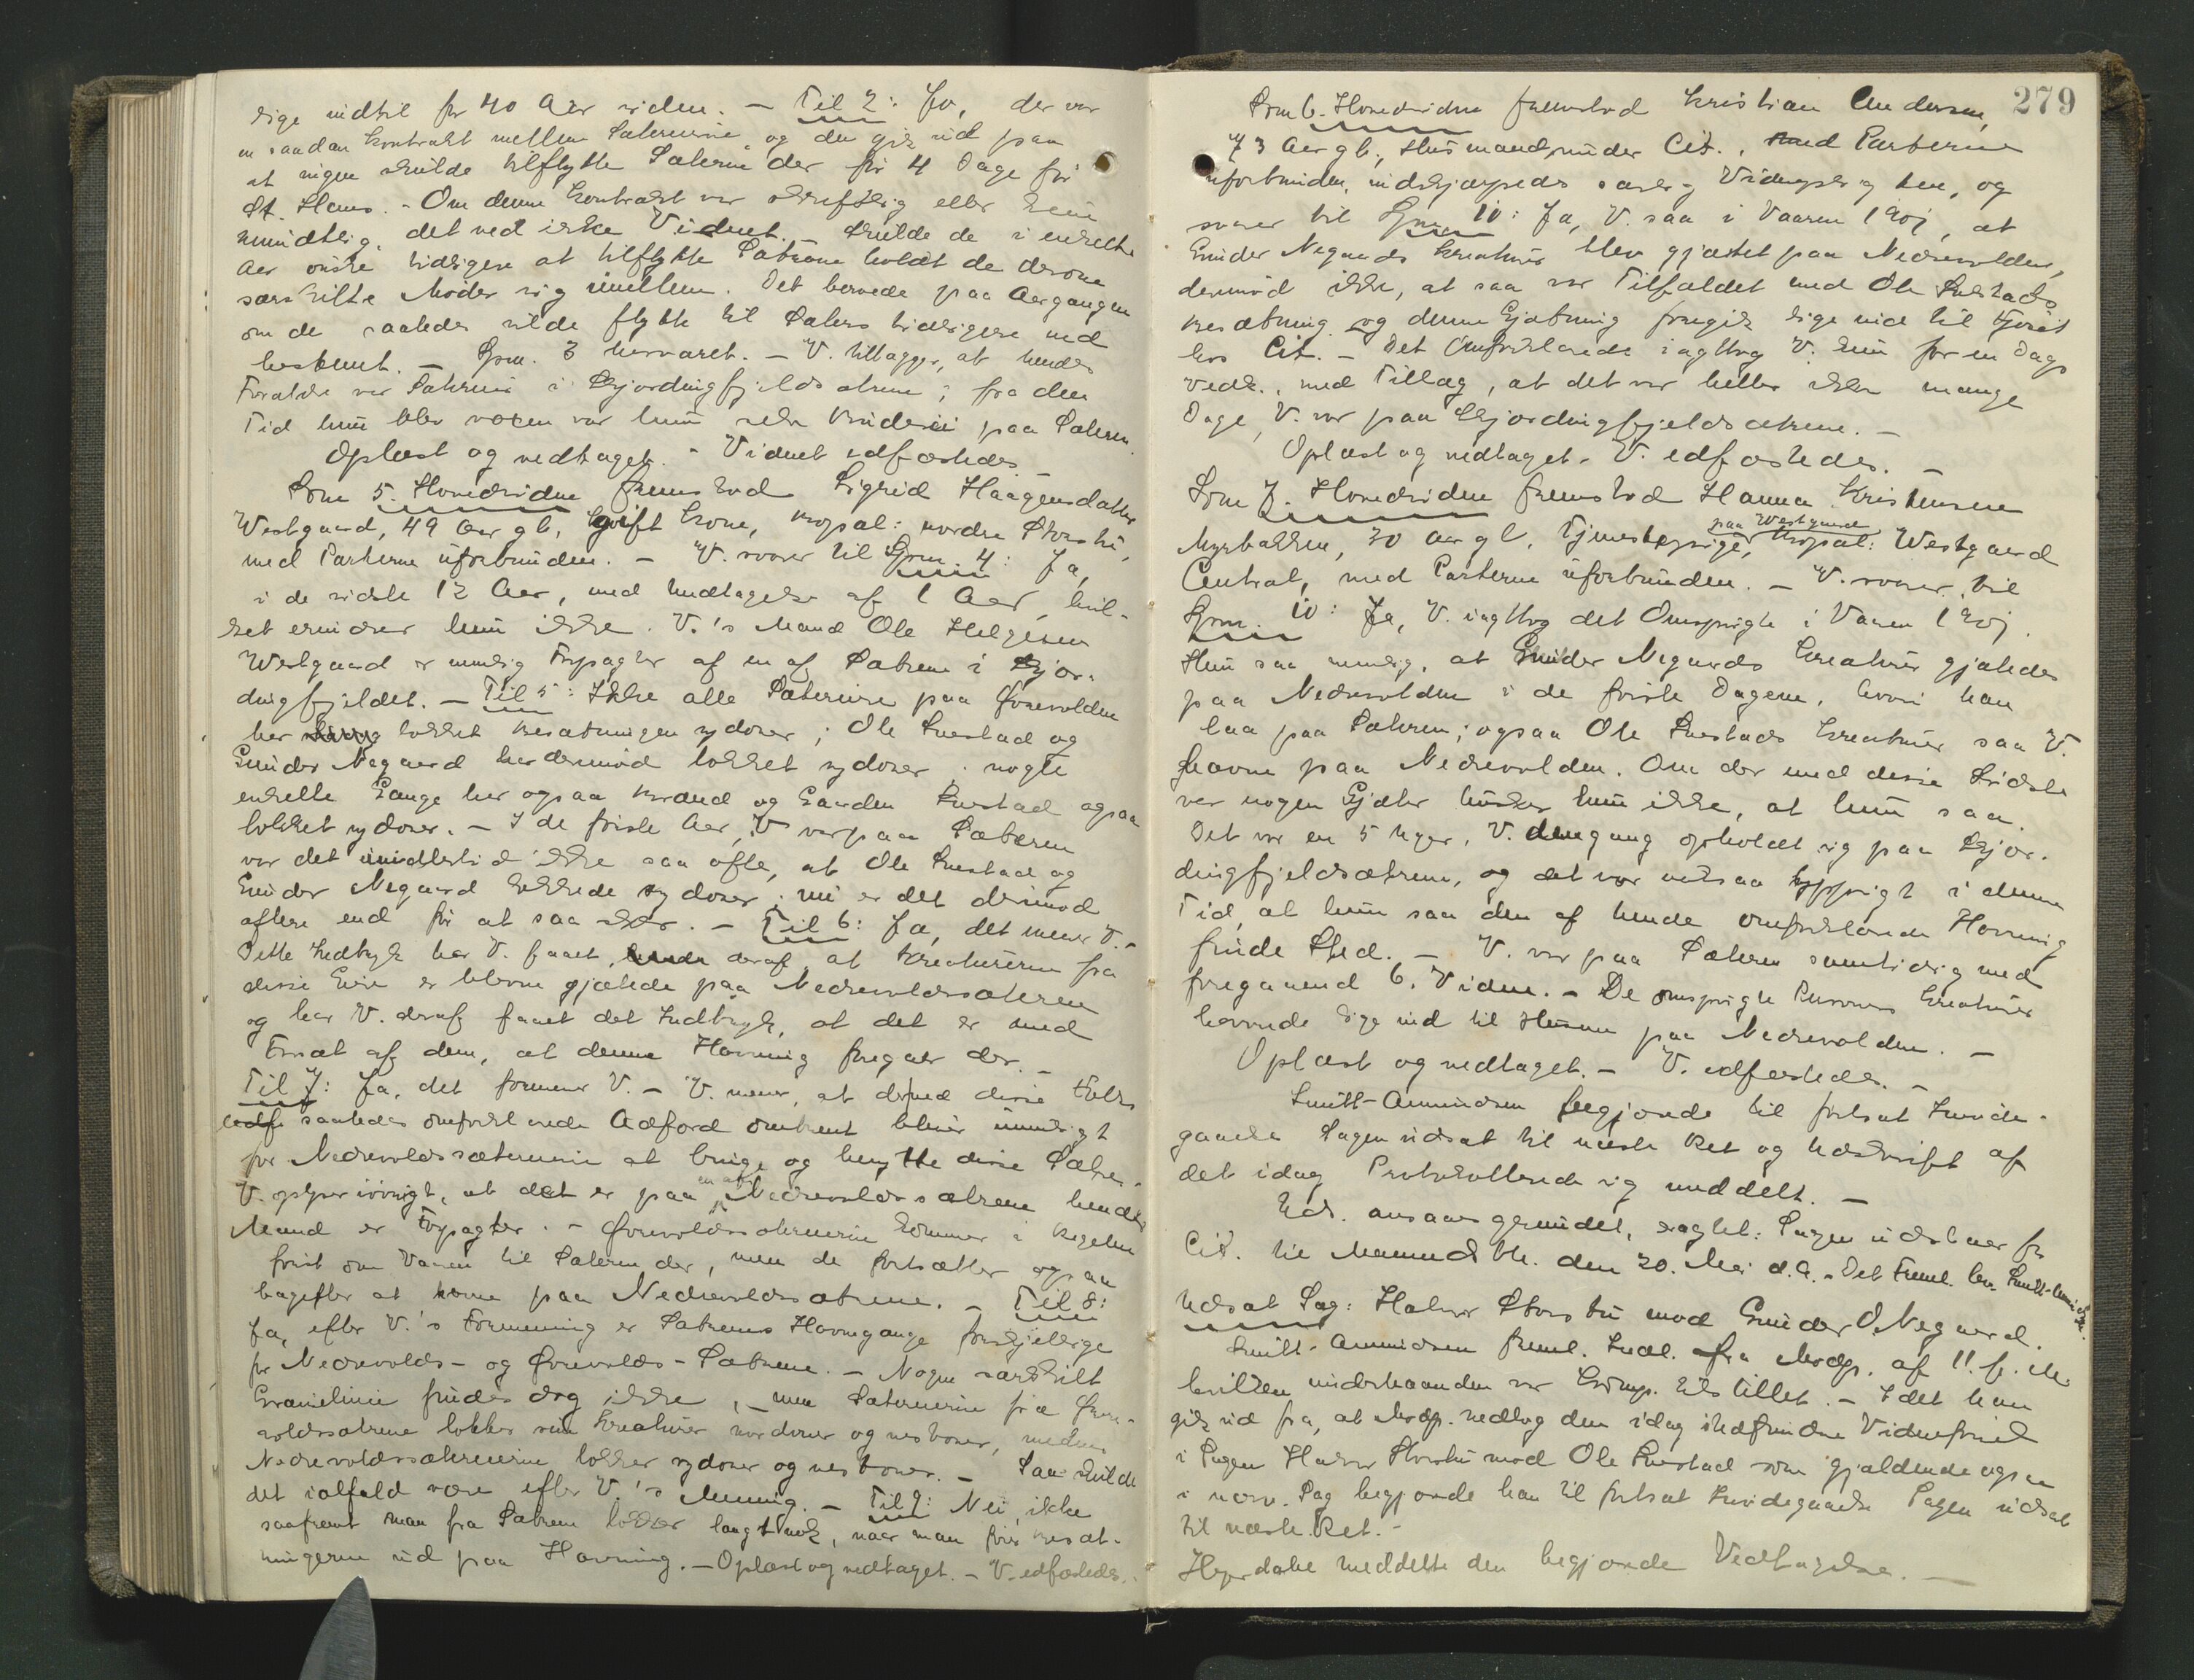 lige indtil for 40 Aar siden. – Til 2: Jo, der var
en saadan Kontrakt mellem Sæterierne og den gik ud paa
at ingen skulde tilflytte Sæterne der før 4 Dage før
St. Hans. – Om denne Kontrakt var skriftlig eller kun
mundtlig, det ved ikke Vidnet. – Skulde de i enkelte
Aar ønske tidligere at tilflytte Sætrene holdt de derom
særskilte Møder sig imellem. Det beroede paa Aargangen
om de saaledes vilde flytte til Sæters tidligere end
bestemt. – Spm. 3 besvaret. – V. tillægger, at hendes
Forældre var Sæterier i Skjordingfjeldsætrene; fra den
Tid hun blev voxen var hun selv Budeie paa Sætren.
Oplæst og vedtaget. – Vidnet edfæstedes. –
Som 5. Hovedvidne fremstod Sigrid Haagensdatter
Westgaard, 49 Aar gl., gift Kone, Bopæl: nordre Storsti,
med Parterne uforbunden. – V. svarer til Spm. 4: Ja,
i de sidste 12 Aar, med Undtagelse af 1 Aar, hvil-
ket erindrer hun ikke. V.'s Mand Ole Helgesen
Westgaard er nemlig Forpagter af en af Sætrene i Skjor-
dingfjeldet. – Til 5: Ikke alle Sæterierne paa Øvrevolden
har lokket Besætningen sydover; Ole Snestad og
Gunder Negaard har derimod lokket sydover; nogle
enkelte Gange har ogsaa og Gaarden Snestad ogsaa
lokket sydover. – I de første Aar, V. var paa Sæteren
var det imidlertid ikke saa ofte, at Ole Snestad og
Gunder Negaard lokkede sydover; nu er det derimod
oftere end før at saa sker. – Til 6: Ja, det mener V. –
Dette Indtryk har V. faaet deraf, at Kreaturerne fra
disse Eiere er blevne gjætede paa Nedrevoldsæteren
og har V. deraf faaet det Indtryk, at det er med
Forsæt af dem, at denne Havning foregaar der. –
Til 7: Ja, det formener V. – V. mener, at derved disse Folks
saaledes omforklarede Adfærd omtrent bliver umuligt
for Nedrevoldssæterierne at bruge og benytte disse Sætre.
V. oplyser iøvrigt, at det er paa en af Nedrevoldssætrene hendes
Mand er Forpagter. – Øvrevoldssæterierne kommer i Regelen
først om Vaaren til Sæteren der, men de fortsætter ogsaa
bagefter at havne paa Nedrevoldssætrene. – Til 8:
Ja, efter V.'s Formening er Sætrenes Havnegange forskjellige
for Nedrevolds- og Øvrevolds-Sætrene. – Nogen særskilt
Grændselinie findes dog ikke, – men Sæterierne fra Øvre-
voldssætrene lokker sine Kreaturer nordover og vestover, medens
Nedrevoldssæterierne lokker sydover og vestover. – Saa skulde
det ialfald være efter V.'s Mening. – Til 9: Nei, ikke
saafremt man fra Sætrene lokker langt nok, naar man fører Besæt-
ningerne ud paa Havning. – Oplæst og vedtaget. – V. edfæstedes.
279
Som 6. Hovedvidne fremstod Kristian Andersen,
73 Aar gl., Husmand under Cit., med Parterne
uforbunden, indskjærpedes særlig Vidnepligten, og
svarer til Spm. 10: Ja, V. saa i Vaaren 1907, at
Gunder Negaards Kreaturer blev gjætet paa Nedrevolden,
derimod ikke, at saa var Tilfældet med Ole Snestads
Besætning og denne Gjætning foregik lige ind til Fjøset
hos Cit. – Det Omforklarede iagttog V. kun for en Dags
Vedk., med Tillæg, at det var heller ikke mange
Dage, V. var paa Skjordingfjeldsætrene. –
Oplæst og vedtaget. V. edfæstedes. –
Som 7. Hovedvidne fremstod Hanna Kristensen
Myrbakken, 30 Aar gl., Tjenestepige paa Westgaard, Bopæl: Westgaard
Central, med Parterne uforbunden. – V. svarer til
Spm. 10: Ja, V. iagttog det Omspurgte i Vaaren 1907.
Hun saa nemlig, at Gunder Negaards Kreaturer gjætedes
paa Nedrevolden i de første Dagene, hvori han
laa paa Sæteren; ogsaa Ole Snestads Kreaturer saa V.
havne paa Nedrevolden. Om der med disse sidste
var nogen Gjæter husker hun ikke, at hun saa.
Det var en 5 Uger, V. dengang opholdt sig paa Skjor-
dingfjeldsætrene, og det var ret saa hyppigt i denne
Tid, at hun saa den af hende omforklarede Havning
finde Sted. – V. var paa Sæteren samtidig med
foregaaende 6. Vidne. – De omspurgte Personers Kreaturer
havnede lige ind til Husene paa Nedrevolden. –
Oplæst og vedtaget. – V. edfæstedes. –
Smitt-Amundsen begjærede til fortsat Imøde-
gaaelse Sagen udsat til næste Ret og Udskrift af
det idag Protokollerede sig meddelt. –
Uds. ansaaes grundet, eragtet: Sagen udstaar for
Cit. til Maaned.th. den 20. Mai d.A. – Det Freml. lev. Smitt-Amundsen.
Udsat Sag: Halvor Storsti mod Gunder O. Negaard.
Smitt-Amundsen freml. Indl. fra Modp. af 11. f. M.
hvilken underhaanden var Kontrap. tilstillet. – Idet han
gik ud fra, at Modp. vedtog den idag stedfundne Vidneførsel
i Sagen Halvor Storsti mod Ole Snestad som gjældende ogsaa
i nærv. Sag begjærede han til fortsat Imødegaaelse Sagen udsat
til næste Ret. –
Hejerdahl meddelte den begjærede Vedtagelse. –